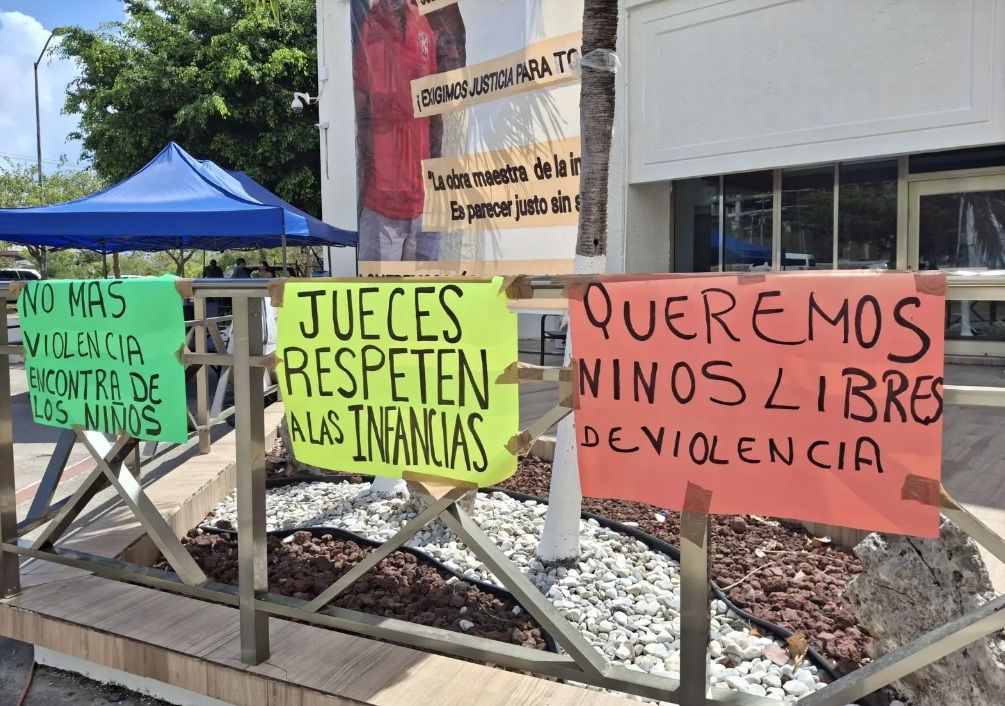 ¡EXIGIMOS JUSTICIA PARA
"La obra maestra de la
Es parecer justo sin
NO MAS
VIOLENCIA
ENCONTRA DE
LOS NIÑOS
JUECES
RESPETEN
A LAS INFANCIAS
QUEREMOS
NINOS LIBRES
DE VIOLENCIA